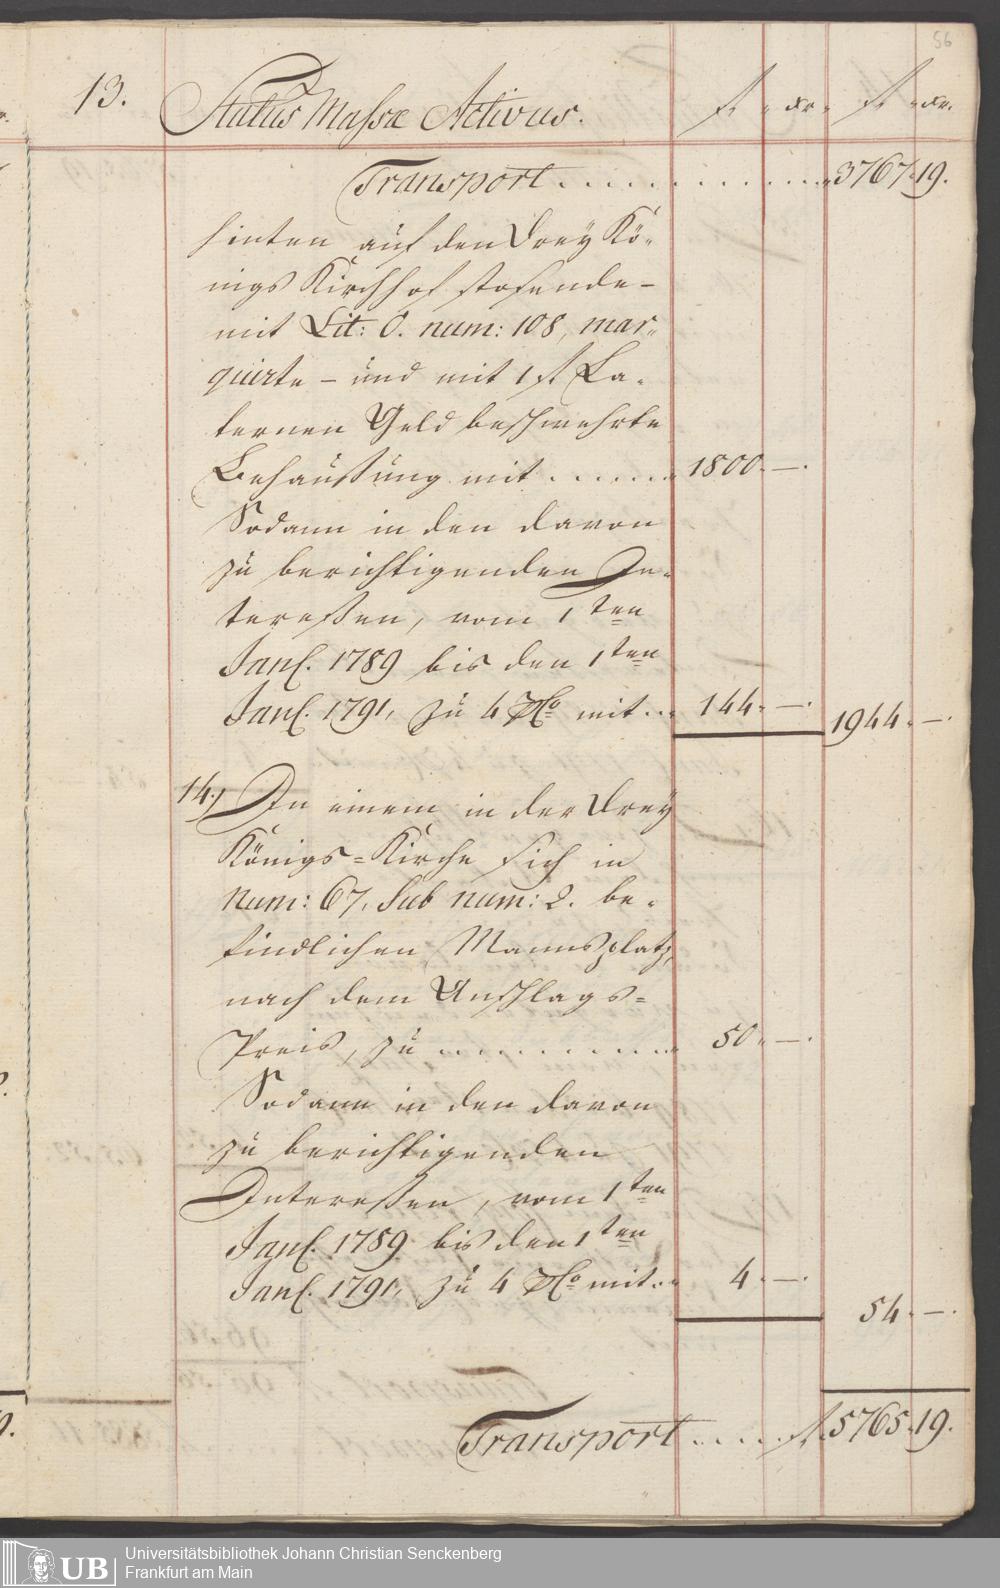 56
13. Status Massæ Activus. fl xr. fl xr.
Transport . . . . . . . . . . . 3767. 19.
hinten auf den Drey Kö-
nigs Kirchhof stosende-
mit Lit: O. num: 108, mar-
quirte - und mit 1 fl. La-
ternen Geld beschwehrte
Behaußung mit . . . . . . 1800. —.
Sodann in den davon
zu berichtigenden In-
tereßen, vom 1ten
Jan. 1789 bis den 1ten
Jan. 1791, zu 4 PCo mit . . . 144. —. 1944. —.
14.) In einem in der Drey
Königs=Kirche sich in
Num: 67, Sub num: 2. be-
findlichen Mannsplatz,
nach dem Anschlags=
Preis, zu . . . . . . . . . 50. —.
Sodann in den davon
zu berichtigenden
Intereßen, vom 1ten
Jan. 1789 bis den 1ten
Jan. 1791, zu 4 PCo mit . . . 4. —.
54. —.
Transport . . . . . fl. 5765. 19.
UB Universitätsbibliothek Johann Christian Senckenberg
Frankfurt am Main